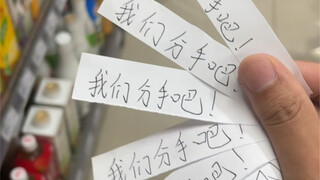 手吧！
我们分手吧！
我们分手吧！
我们分手吧！